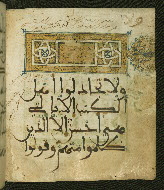 ولا تجادلوا اهل
الكتب الا بالتي
هي احسن الا الذين
ظلموا منهم وقولوا